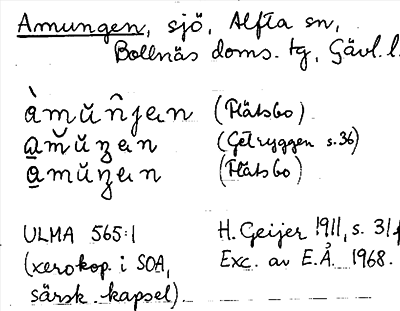 Amungen, sjö, Alfta sn,
Bollnäs doms. tg, Gävl. l.
(Flätsbo)
(Getryggen s. 36)
(Flätsbo)
ULMA 565:1 H. Geijer 1911, s. 31f
(xerokop. i SOA, Exc. av E.Å. 1968.
särsk. kapsel).